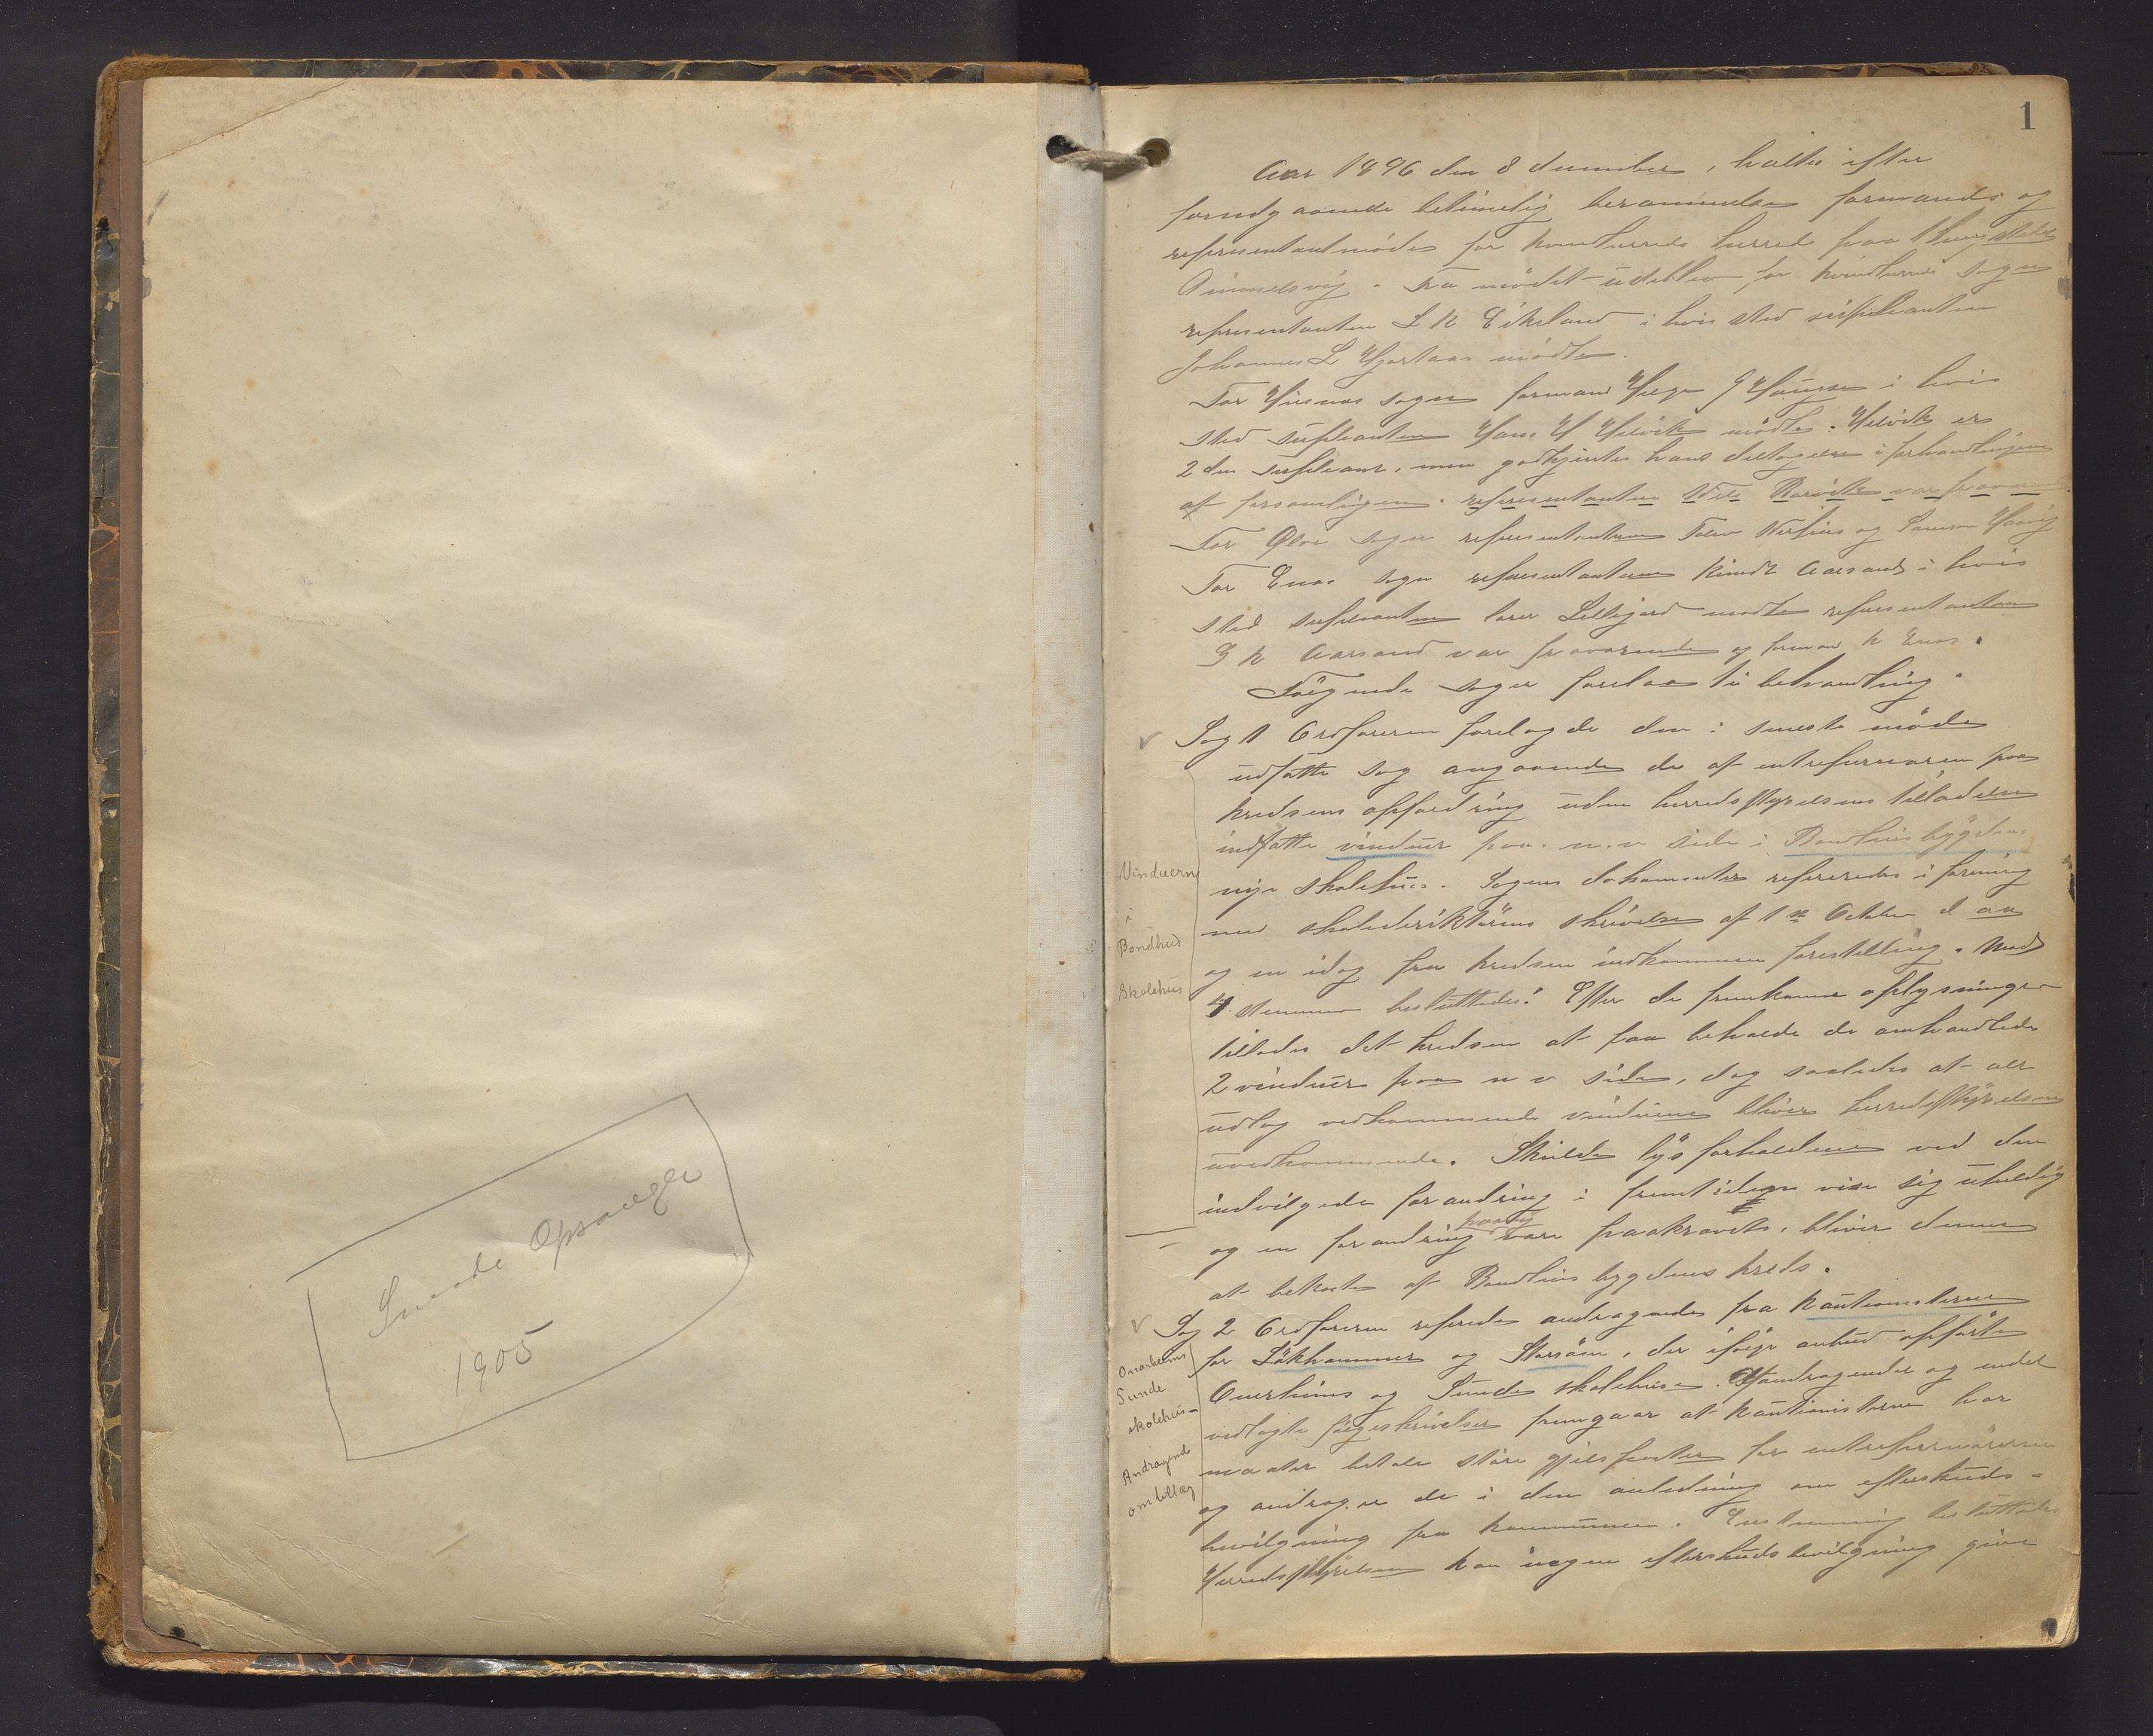 Snaade Opsange
1905
1
Aar 1896 den 8 december, holdtes efter
forudgaaende betimelig berammelse formands og
representantmøde for Kvindherreds herred paa thingstedet
Dimmelsvig. Fra mødet udeblev, for Kvindherred sogn
representanten L K Eikeland i hvis sted supleanten
Johannes L Hjortaas mødte.
For Husnes sogn formand Helge J Hauge i hvis
sted supleanten Hans H Helvik mødte. Helvik er
2den supleant, men godkjentes hans deltagelse i forhandlingerne
af forsamlingen. representanten Røsvik var fraværende.
For Ølve sogn representanterne og Samson Haavig
For Enæs sogn representanterne Knudt Aarsand i hvis
sted supleanten lærer Lillejord mødte representanten
G K Aarsand var fraværende og formand K Enæs.
Følgende sager forelaa til behandling.
Sag 1 Ordføreren forelagde den i seneste møde
udsatte sag angaaende de af entreprenøren paa
kredsens opfordring uden herredsstyrelsens tilladelse
indsatte vinduer paa n.v side i Bondhusbygdens
nye skolehus. Sagens dokumenter refereredes i forening
med skoledirektørens skrivelse af 1ste Oktober d aa
og en idag fra kredsen indkommen forestilling. Med
4 stemmer besluttedes: Efter de fremkomne oplysninger
tillades det kredsen at faa beholde de omhandlede
2 vinduer paa n v side, dog saaledes at alt
udlæg vedkommende vinduerne bliver herredsstyrelsen
uvedkommende. Skulde lysforholdene ved den
indvilgede forandring i fremtiden vise sig uheldig
og en forandring paany være paakrævet, bliver denne
at bekoste af Bondhusbygdens kreds.
Vinduerne
i
Bondhus
Skolehus
Sag 2 Ordføreren refererede andragende fra kautionisterne
for Løkhammer og Storsøen, der ifølge anbud opførte
Onerheims og Sunde skolehuse. Af andragendet og endel
vedlagte følgeskrivelser fremgaar at kautionisterne har
maatte betale store gjelsposter for entreprenørerne
og andrager de i den anledning om efterskuds-
bevilgning fra kommunen. Enstemmig besluttedes
Herredsstyrelsen kan ingen efterskudsbevilgning give
Onarheims
Sunde
skolehus-
Andragende
om tillæg